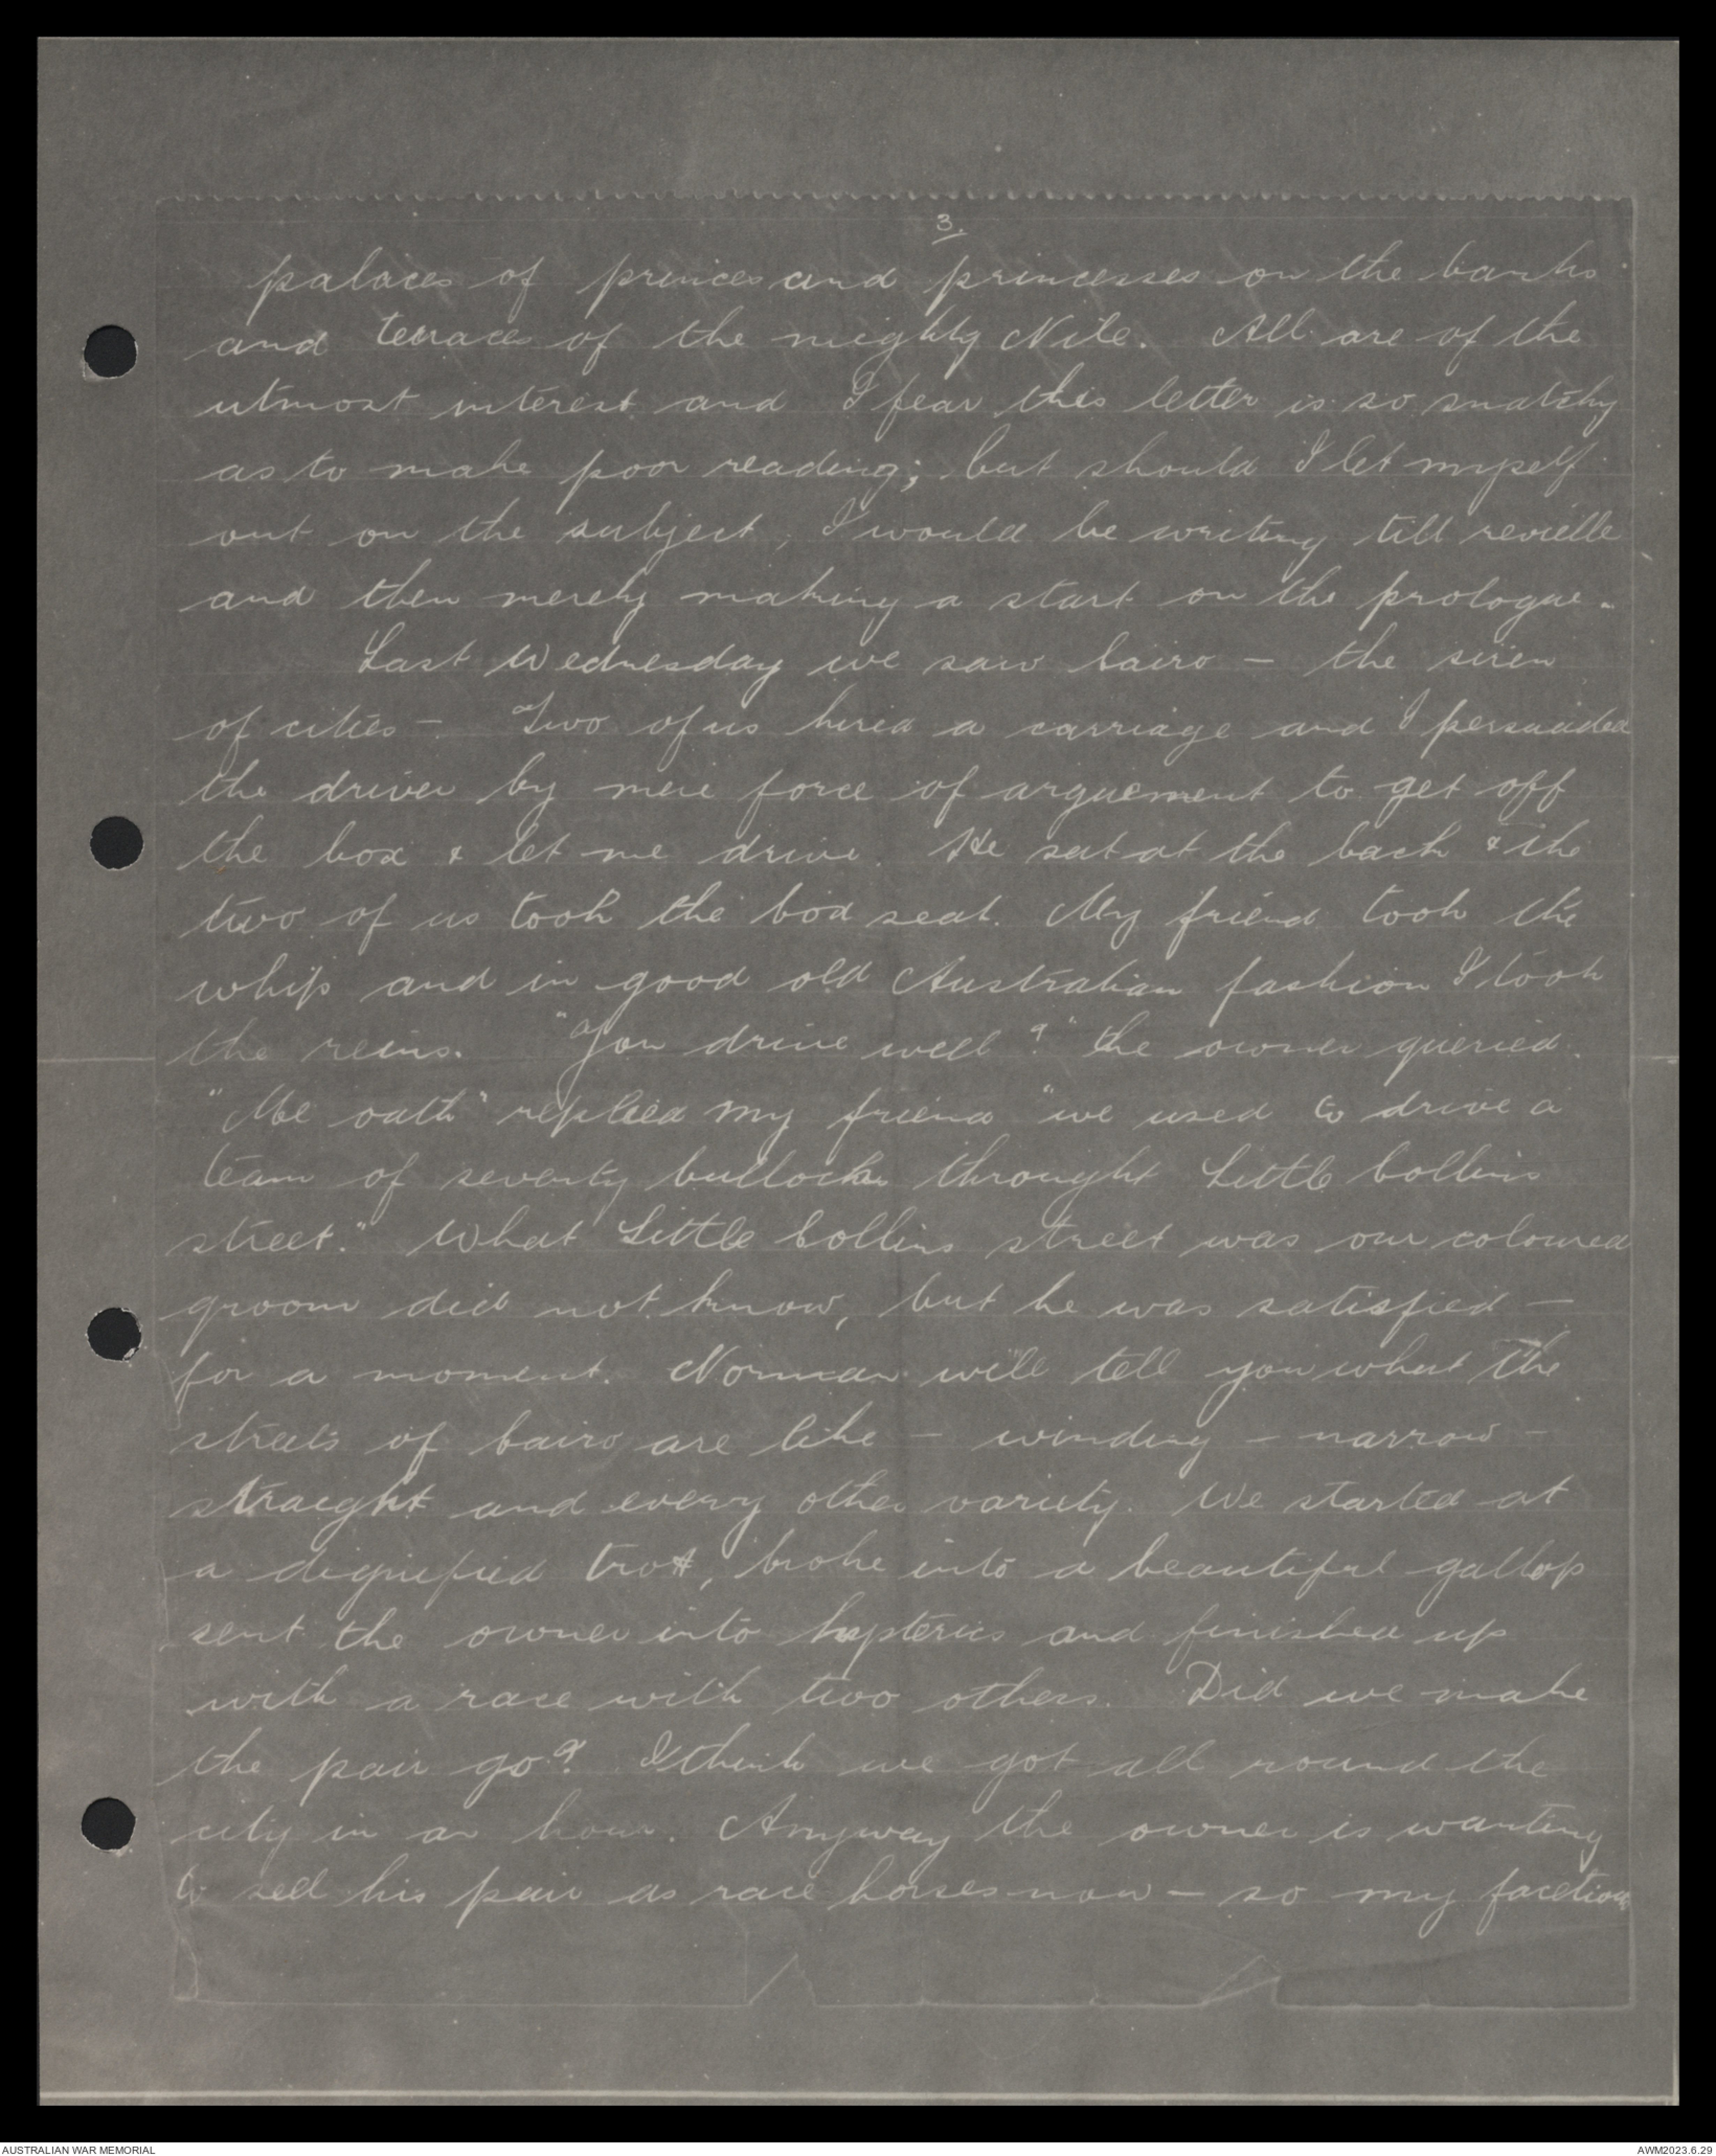 3.
palaces of princes and princesses on the banks
and terraces of the mighty Nile. All are of the
utmost interest and I fear this letter is so snatchy
as to make poor reading; but should I let myself
out on the subject, I would be writing till revielle
and then merely making a start on the prologue.
Last Wednesday we saw Cairo – the siren
of cities – Two of us hired a carriage and I persuaded
the driver by mere force of arguement to get off
the box & let me drive. He sat at the back & the
two of us took the box seat. My friend took the
whip and in good old Australian fashion I took
the reins. "You drive well?" the owner queried.
"Me oath" replied my friend "we used to drive a
team of seventy bullocks throught Little Collins
street." What Little Collins street was our coloured
groom did not know, but he was satisfied –
for a moment. Norman will tell you what the
streets of Cairo are like – winding – narrow –
straight and every other variety. We started at
a dignified trot, broke into a beautiful gallop
sent the owner into hysterics and finished up
with a race with two others. Did we make
the pair go? I think we got all round the
city in an hour. Anyway the owner is wanting
to sell his pair as race horses now – so my facetious
AUSTRALIAN WAR MEMORIAL
AWM2023.6.29